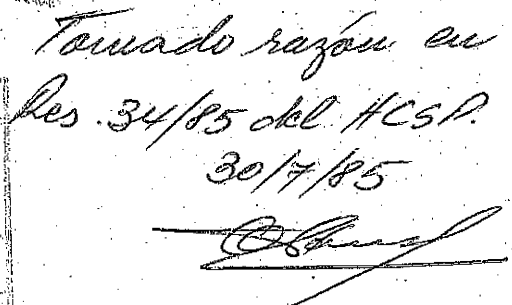 Tomado razón en
Res. 34/85 del HCSP.
30/7/85